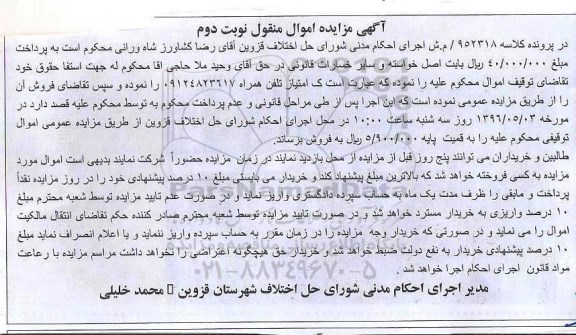 آگهی مزایده اموال منقول نوبت دوم
در پرونده کلاسه ۹۵۲۳۱۸ / م.ش اجرای احکام مدنی شورای حل اختلاف قزوین آقای رضا کشاورز شاه ورانی محکوم است به پرداخت
مبلغ ۴۰/۰۰۰/۰۰۰ ریال بابت اصل خواسته و سایر خسارات قانونی در حق آقای وحید ملا حاجی اقا محکوم له جهت استفا حقوق خود
تقاضای توقیف اموال محکوم علیه را نموده که عبارت است ک امتیاز تلفن همراه ۰۹۱۲۴۸۲۳۶۱۷ را نموده و سپس تقاضای فروش آن
را از طریق مزایده عمومی نموده است که این اجرا پس از طی مراحل قانونی و عدم پرداخت محکوم به توسط محکوم علیه قصد دارد در
مورخه ۱۳۹۶/۰۵/۰۳ روز سه شنبه ساعت ۱۰:۰۰ در محل اجرای احکام شورای حل اختلاف قزوین از طریق مزایده عمومی اموال
توقیفی محکوم علیه را به قمیت پایه ۵/۹۰۰/۰۰۰ ریال به فروش برساند.
طالبین و خریداران می توانند پنج روز قبل از مزایده از محل بازدید نمایند در زمان مزایده حضورا شرکت نمایند بدیهی است اموال مورد
مزایده به کسی فروخته خواهد شد که بالاترین مبلغ پیشنهاد کند و خریدار می بایستی مبلغ ۱۰ درصد پیشنهادی خود را در روز مزایده نقداً
پرداخت و مابقی را ظرف مدت یک ماه به حساب سپرده دادگستری واریز نماید و در صورت عدم تایید مزایده توسط شعبه محترم مبلغ
۱۰ درصد واریزی به خریدار مسترد خواهد شد و در صورت تایید مزایده توسط شعبه محترم صادر کننده حکم تقاضای انتقال مالکیت
اموال را می نماید و در صورتی که خریدار وجه مزایده را در زمان مقرر به حساب سپرده واریز ننماید و یا اعلام انصراف نماید مبلغ
۱۰ درصد پیشنهادی خریدار به نفع دولت ضبط خواهد شد و خریدار حق هیچگونه اعتراضی را نخواهد داشت مراسم مزایده با رعاعت
مواد قانون اجرای احکام اجرا خواهد شد .
مدیر اجرای احکام مدنی شورای حل اختلاف شهرستان قزوین ▯ محمد خلیلی
ParsNamadData
۰۲۱-۸۸۳۴۹۶۷۰-۵